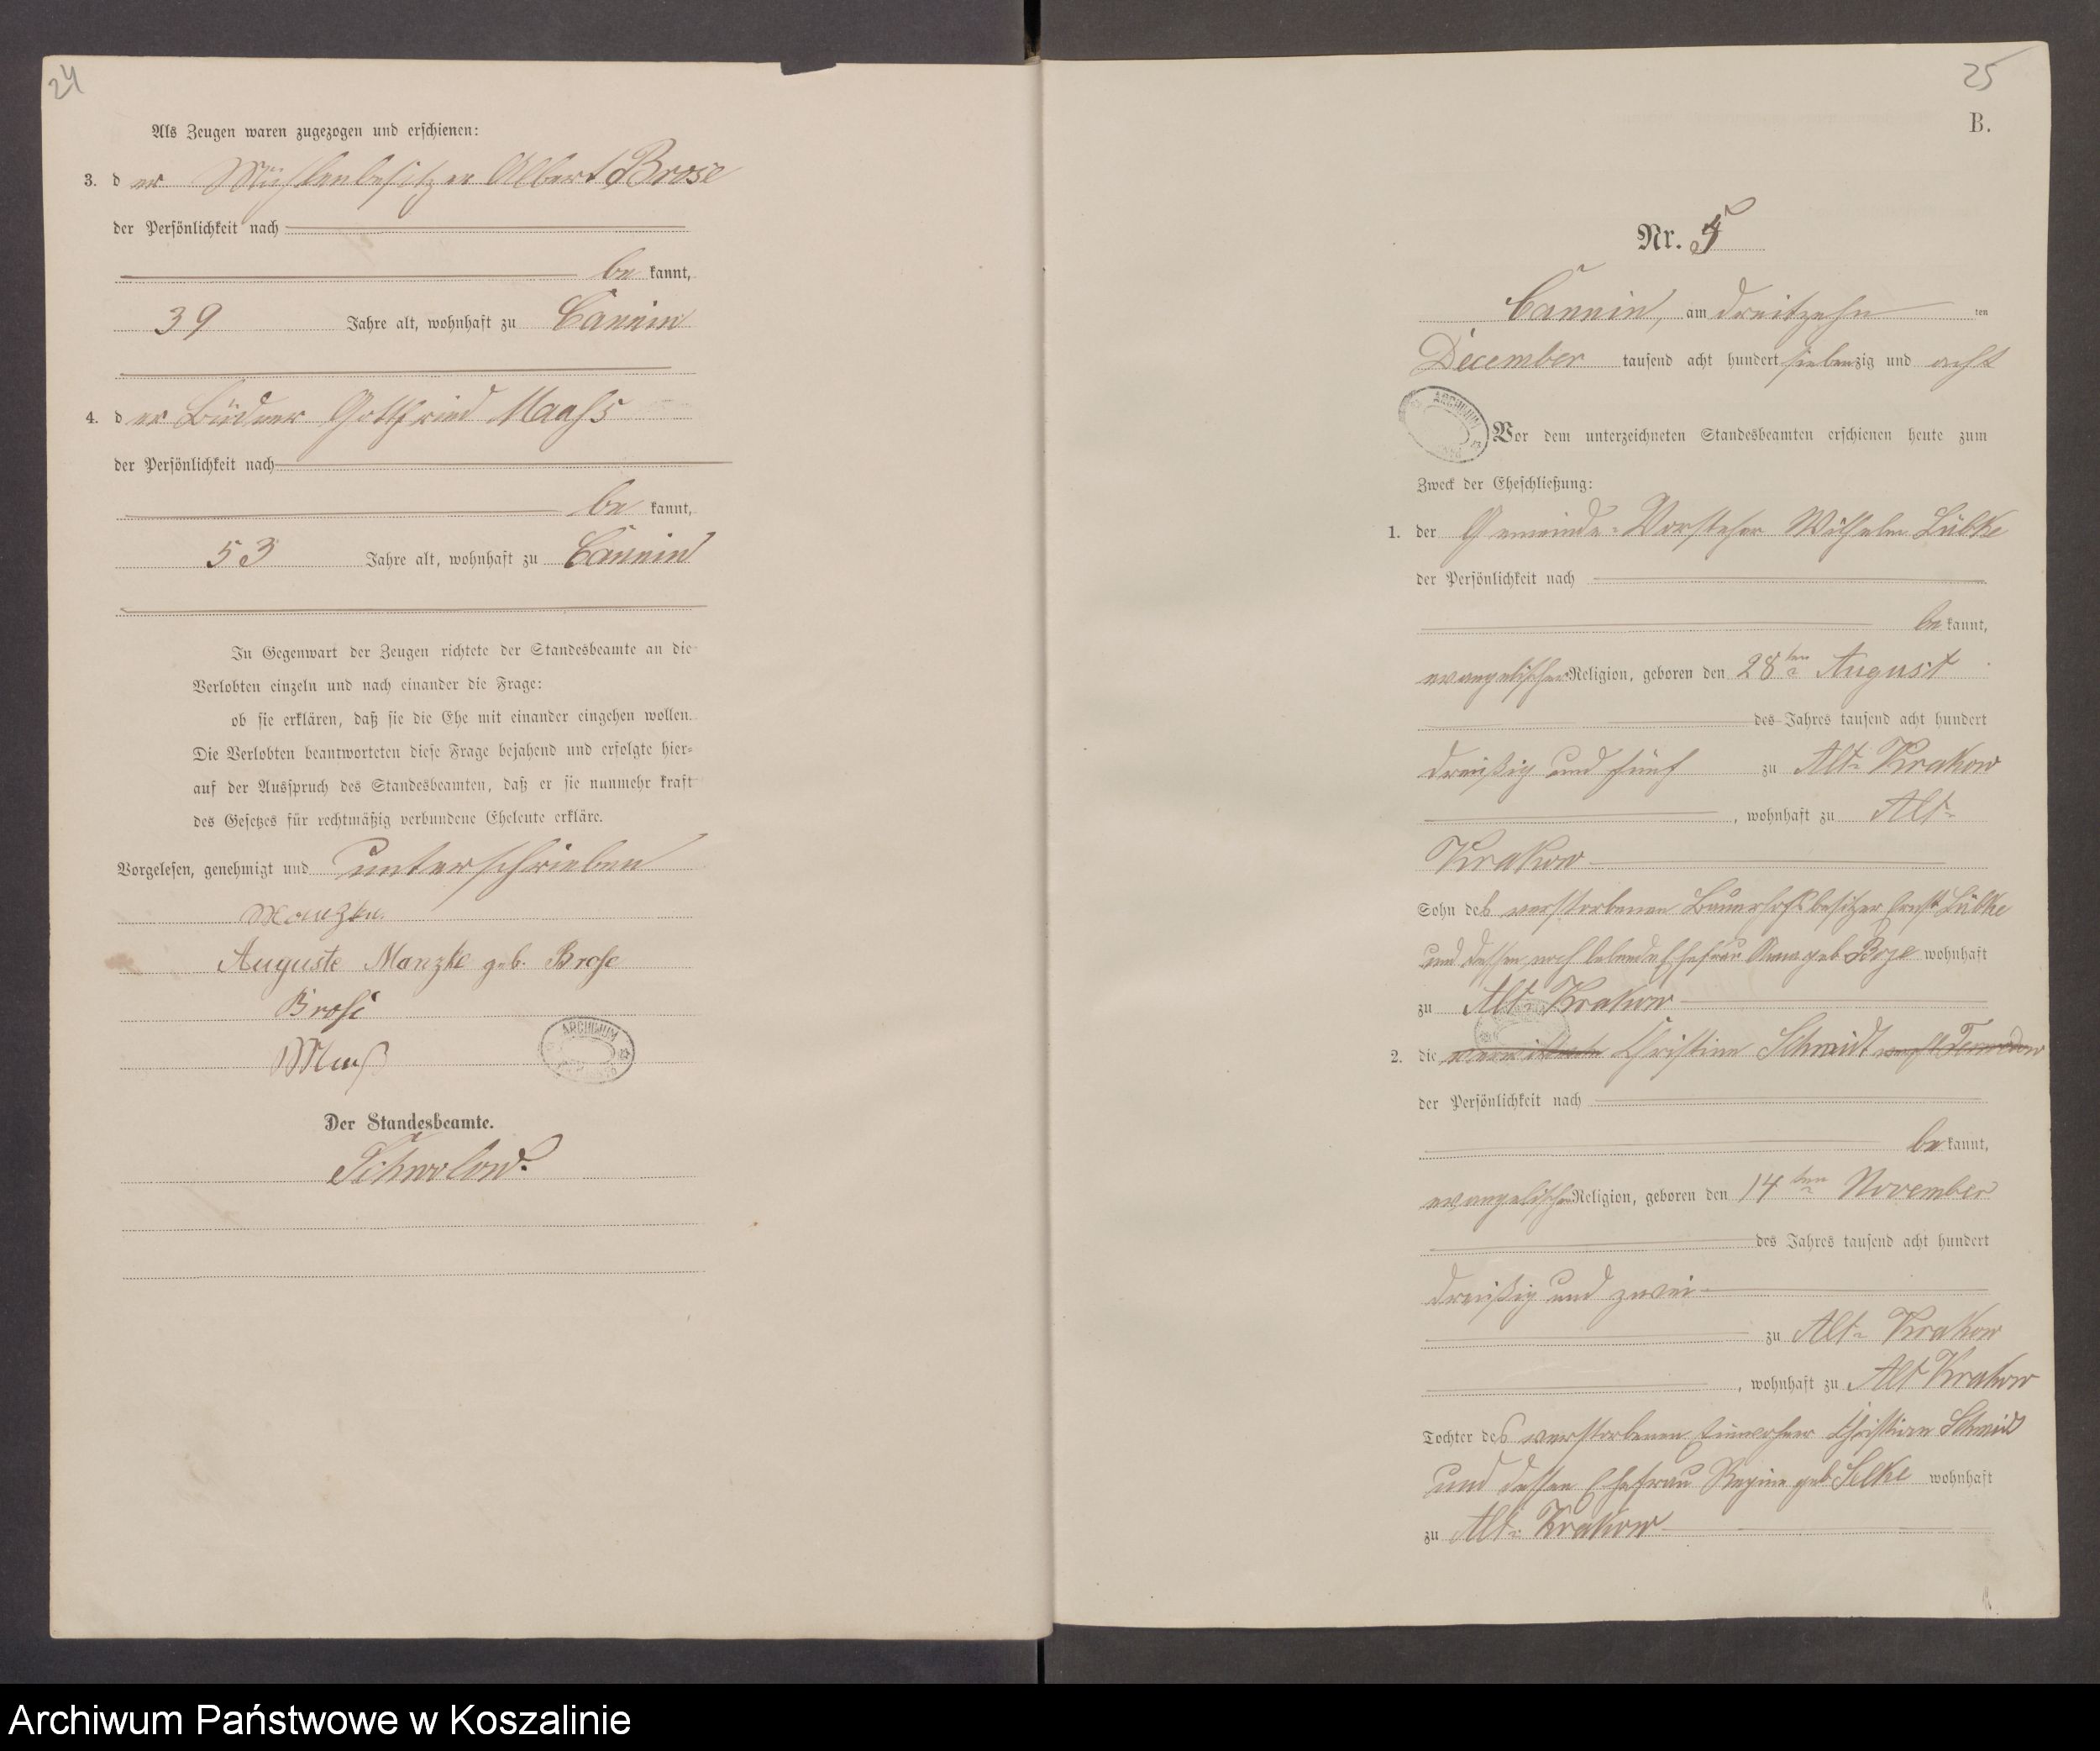 24
Als Zeugen waren zugezogen und erschienen:
3. der Mühlenbesitzer Albert Brose
der Persönlichkeit nach
be kannt,
39 Jahre alt, wohnhaft zu Cannin
4. der Büdner Gottfried Maahs
der Persönlichkeit nach
be kannt,
53 Jahre alt, wohnhaft zu Cannin
In Gegenwart der Zeugen richtete der Standesbeamte an die
Verlobten einzeln und nach einander die Frage:
ob sie erklären, daß sie die Ehe mit einander eingehen wollen.
Die Verlobten beantworteten diese Frage bejahend und erfolgte hier-
auf der Ausspruch des Standesbeamten, daß er sie nunmehr kraft
des Gesetzes für rechtmäßig verbundene Eheleute erkläre.
Vorgelesen, genehmigt und unterschrieben
Manzke.
Auguste Manzke geb. Brose
Brose
ARCHIWUM
Der Standesbeamte.
Schwolow.
25
B.
Nr. 5
Cannin, am dreitzehn ten
December tausend acht hundert siebenzig und acht
ARCHIWUM
Vor dem unterzeichneten Standesbeamten erschienen heute zum
Zweck der Eheschließung:
1. der Gemeinde-Vorsteher Wilhelm Lübke
der Persönlichkeit nach
be kannt,
evangelischer Religion, geboren den 28ten August
des Jahres tausend acht hundert
dreißig und fünf zu Alt-Krakow
, wohnhaft zu Alt-
Krakow
Sohn des verstorbenen Bauerhofsbesitzer Ernst Lübke
und dessen noch lebende Ehefrau Anna geb. Boze wohnhaft
zu Alt-Krakow
2. die Christine Schmidt
der Persönlichkeit nach
be kannt,
evangelischer Religion, geboren den 14ten November
des Jahres tausend acht hundert
dreißig und zwei
zu Alt-Krakow
, wohnhaft zu Alt Krakow
Tochter des verstorbenen Einwohner Christian Schmidt
und dessen Ehefrau Regine geb. Selke wohnhaft
zu Alt-Krakow
Archiwum Państwowe w Koszalinie